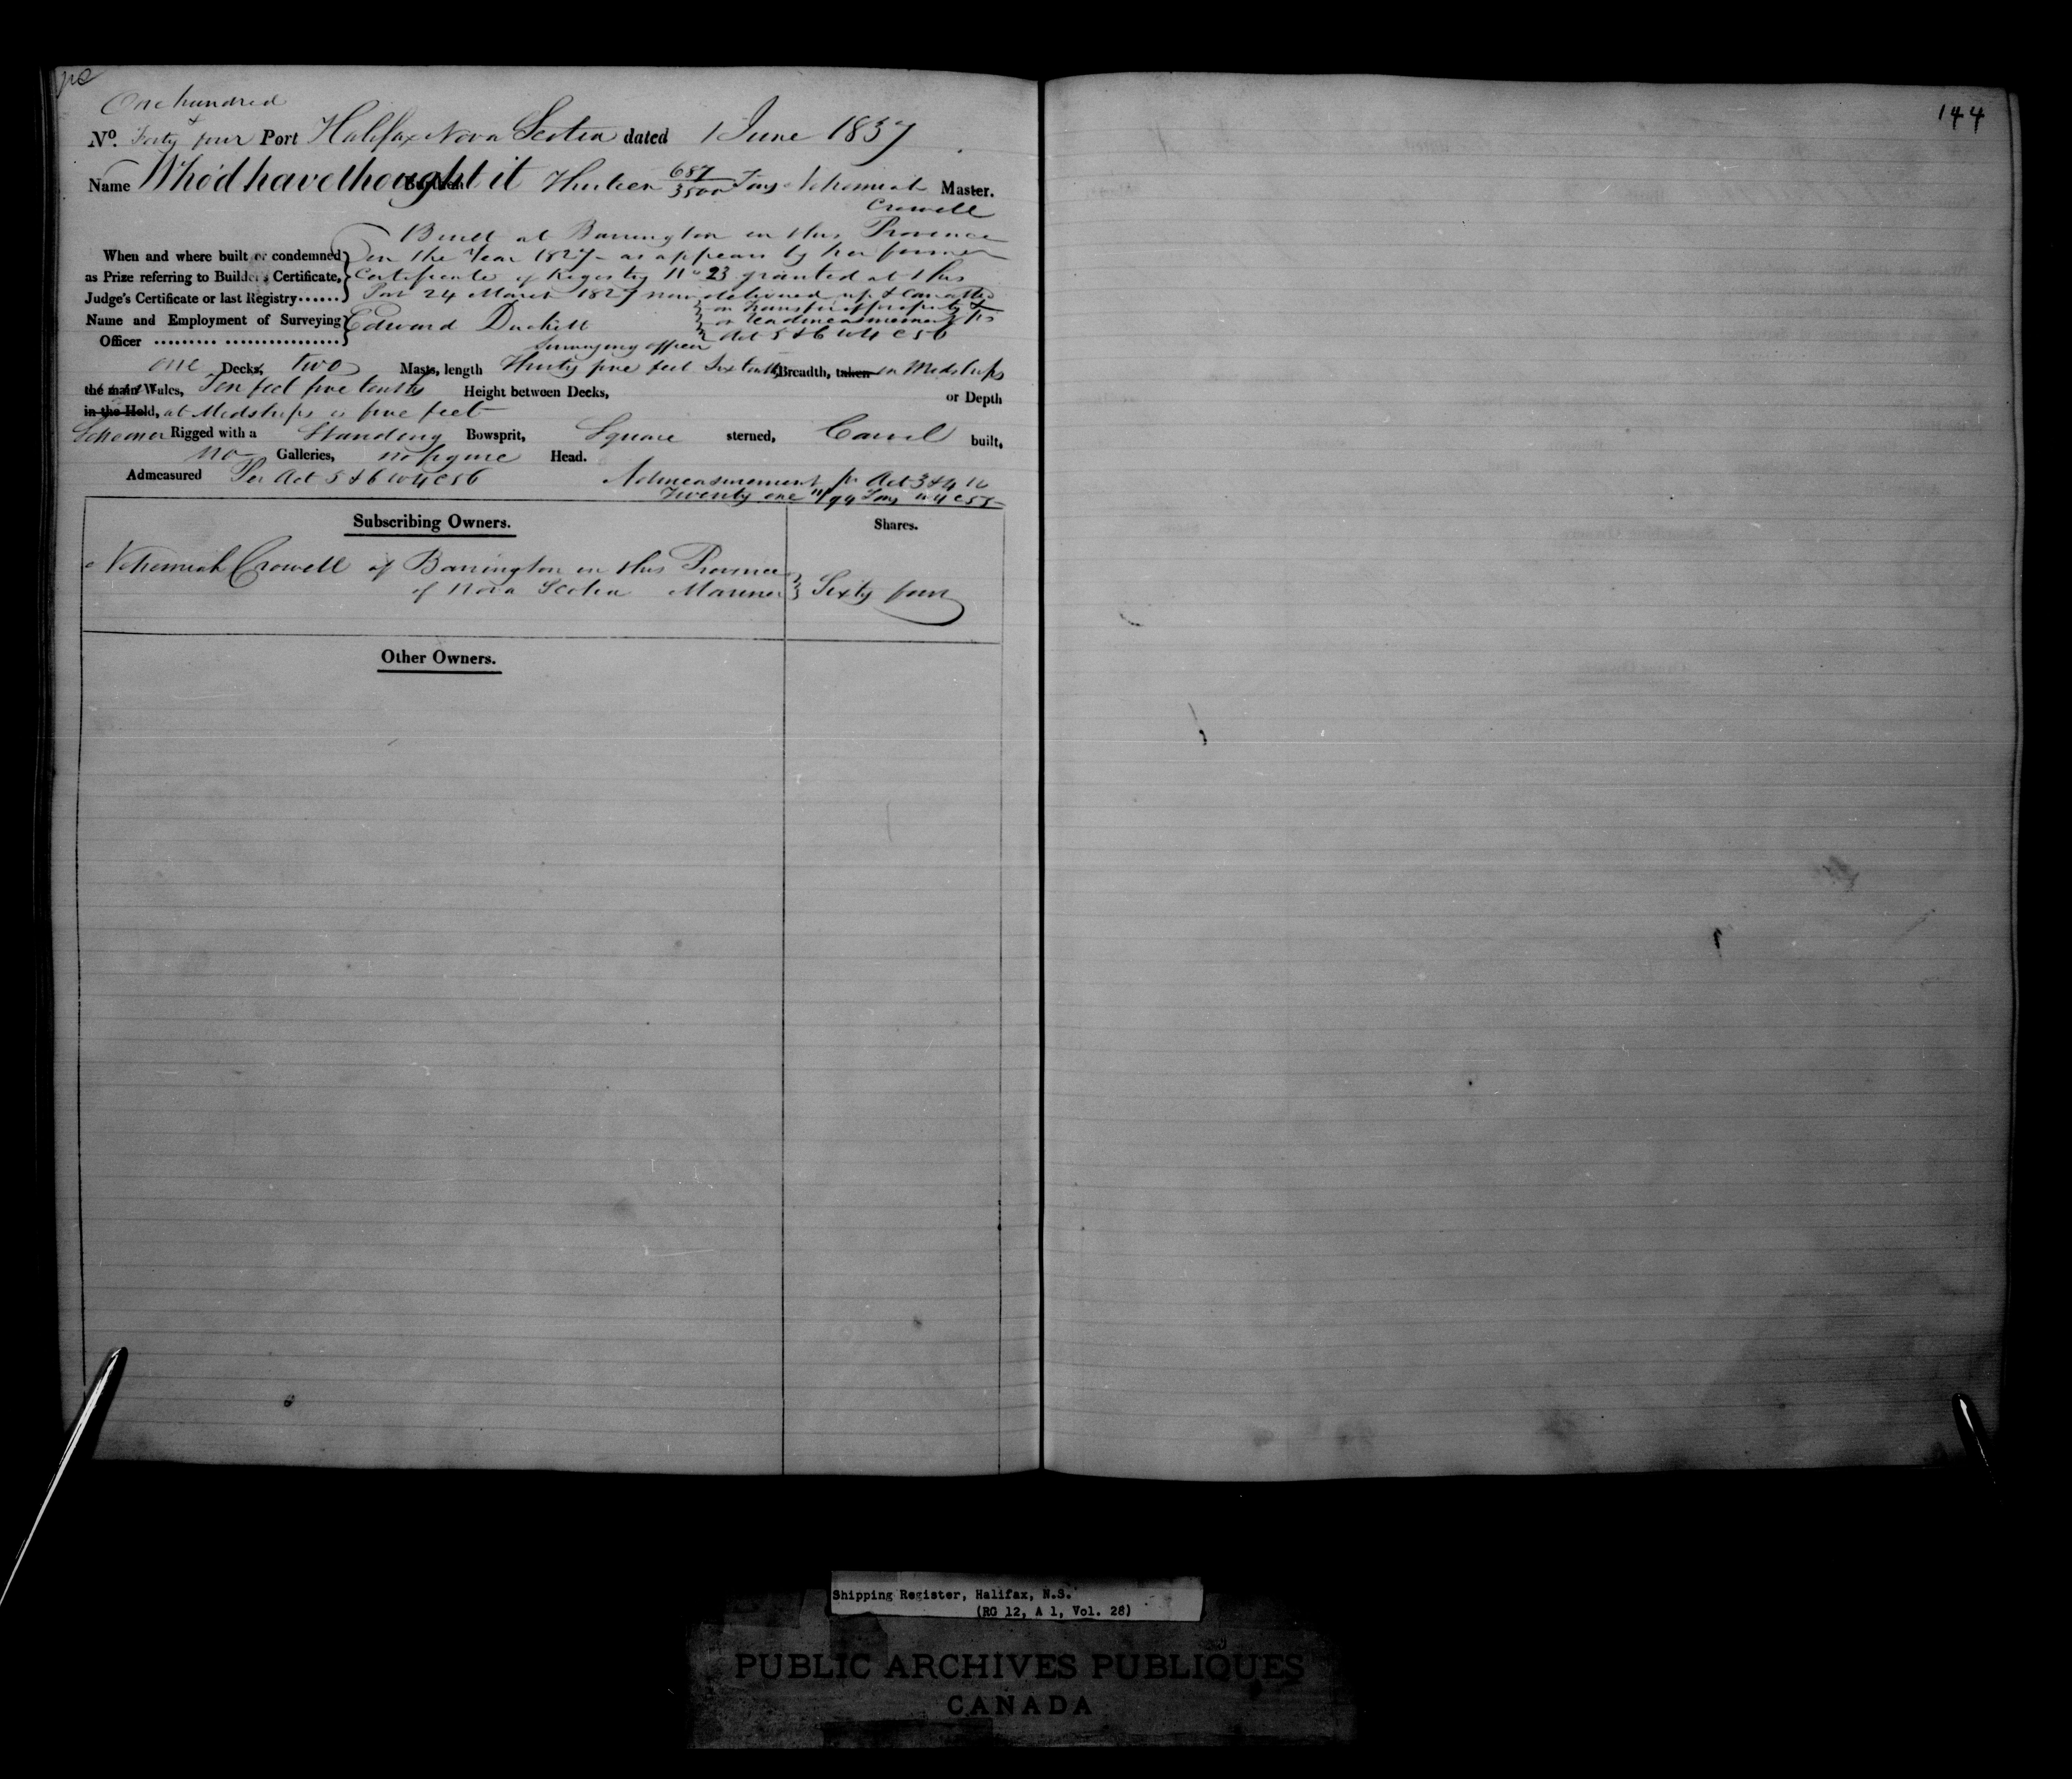 One hundred
&
No. Forty four Port Halifax Nova Scotia dated 1 June 1837
Name Who'd have thought it Burthen Thirteen 687/3500 Tons Nehemiah Master.
Crowell
Built at Barrington in this Province
When and where built or condemned in the Year 1827 as appears by her former
as Prize referring to Builder's Certificate, Certificate of Registry No 23 granted at this
Judge's Certificate or last Registry...... Port 24 March 1827 now delivered up & Cancelled
on transfer of property &
Name and Employment of Surveying Edward Duckett on readmeasurement pr
Officer ......... ................. Surveying officer Act 5 & 6 W 4 C 56
one Decks, two Masts, length Thirty five feet Six tenths, Breadth, taken in Midships
the main Wales, Ten feet five tenths Height between Decks, or Depth
in the Hold, at Midships is five feet
Schooner Rigged with a Standing Bowsprit, Square sterned, Carvel built,
no Galleries, no figure Head.
Admeasured Per Act 5 & 6 W 4 C 56 Admeasurement pr Act 3 & 4
Twenty one 11/94 Tons W 4 C 55
Subscribing Owners. Shares.
Nehemiah Crowell of Barrington in this Province
of Nova Scotia Mariner Sixty four
Other Owners.
144
Shipping Register, Halifax, N.S.
(RG 12, A 1, Vol. 28)
PUBLIC ARCHIVES PUBLIQUES
CANADA